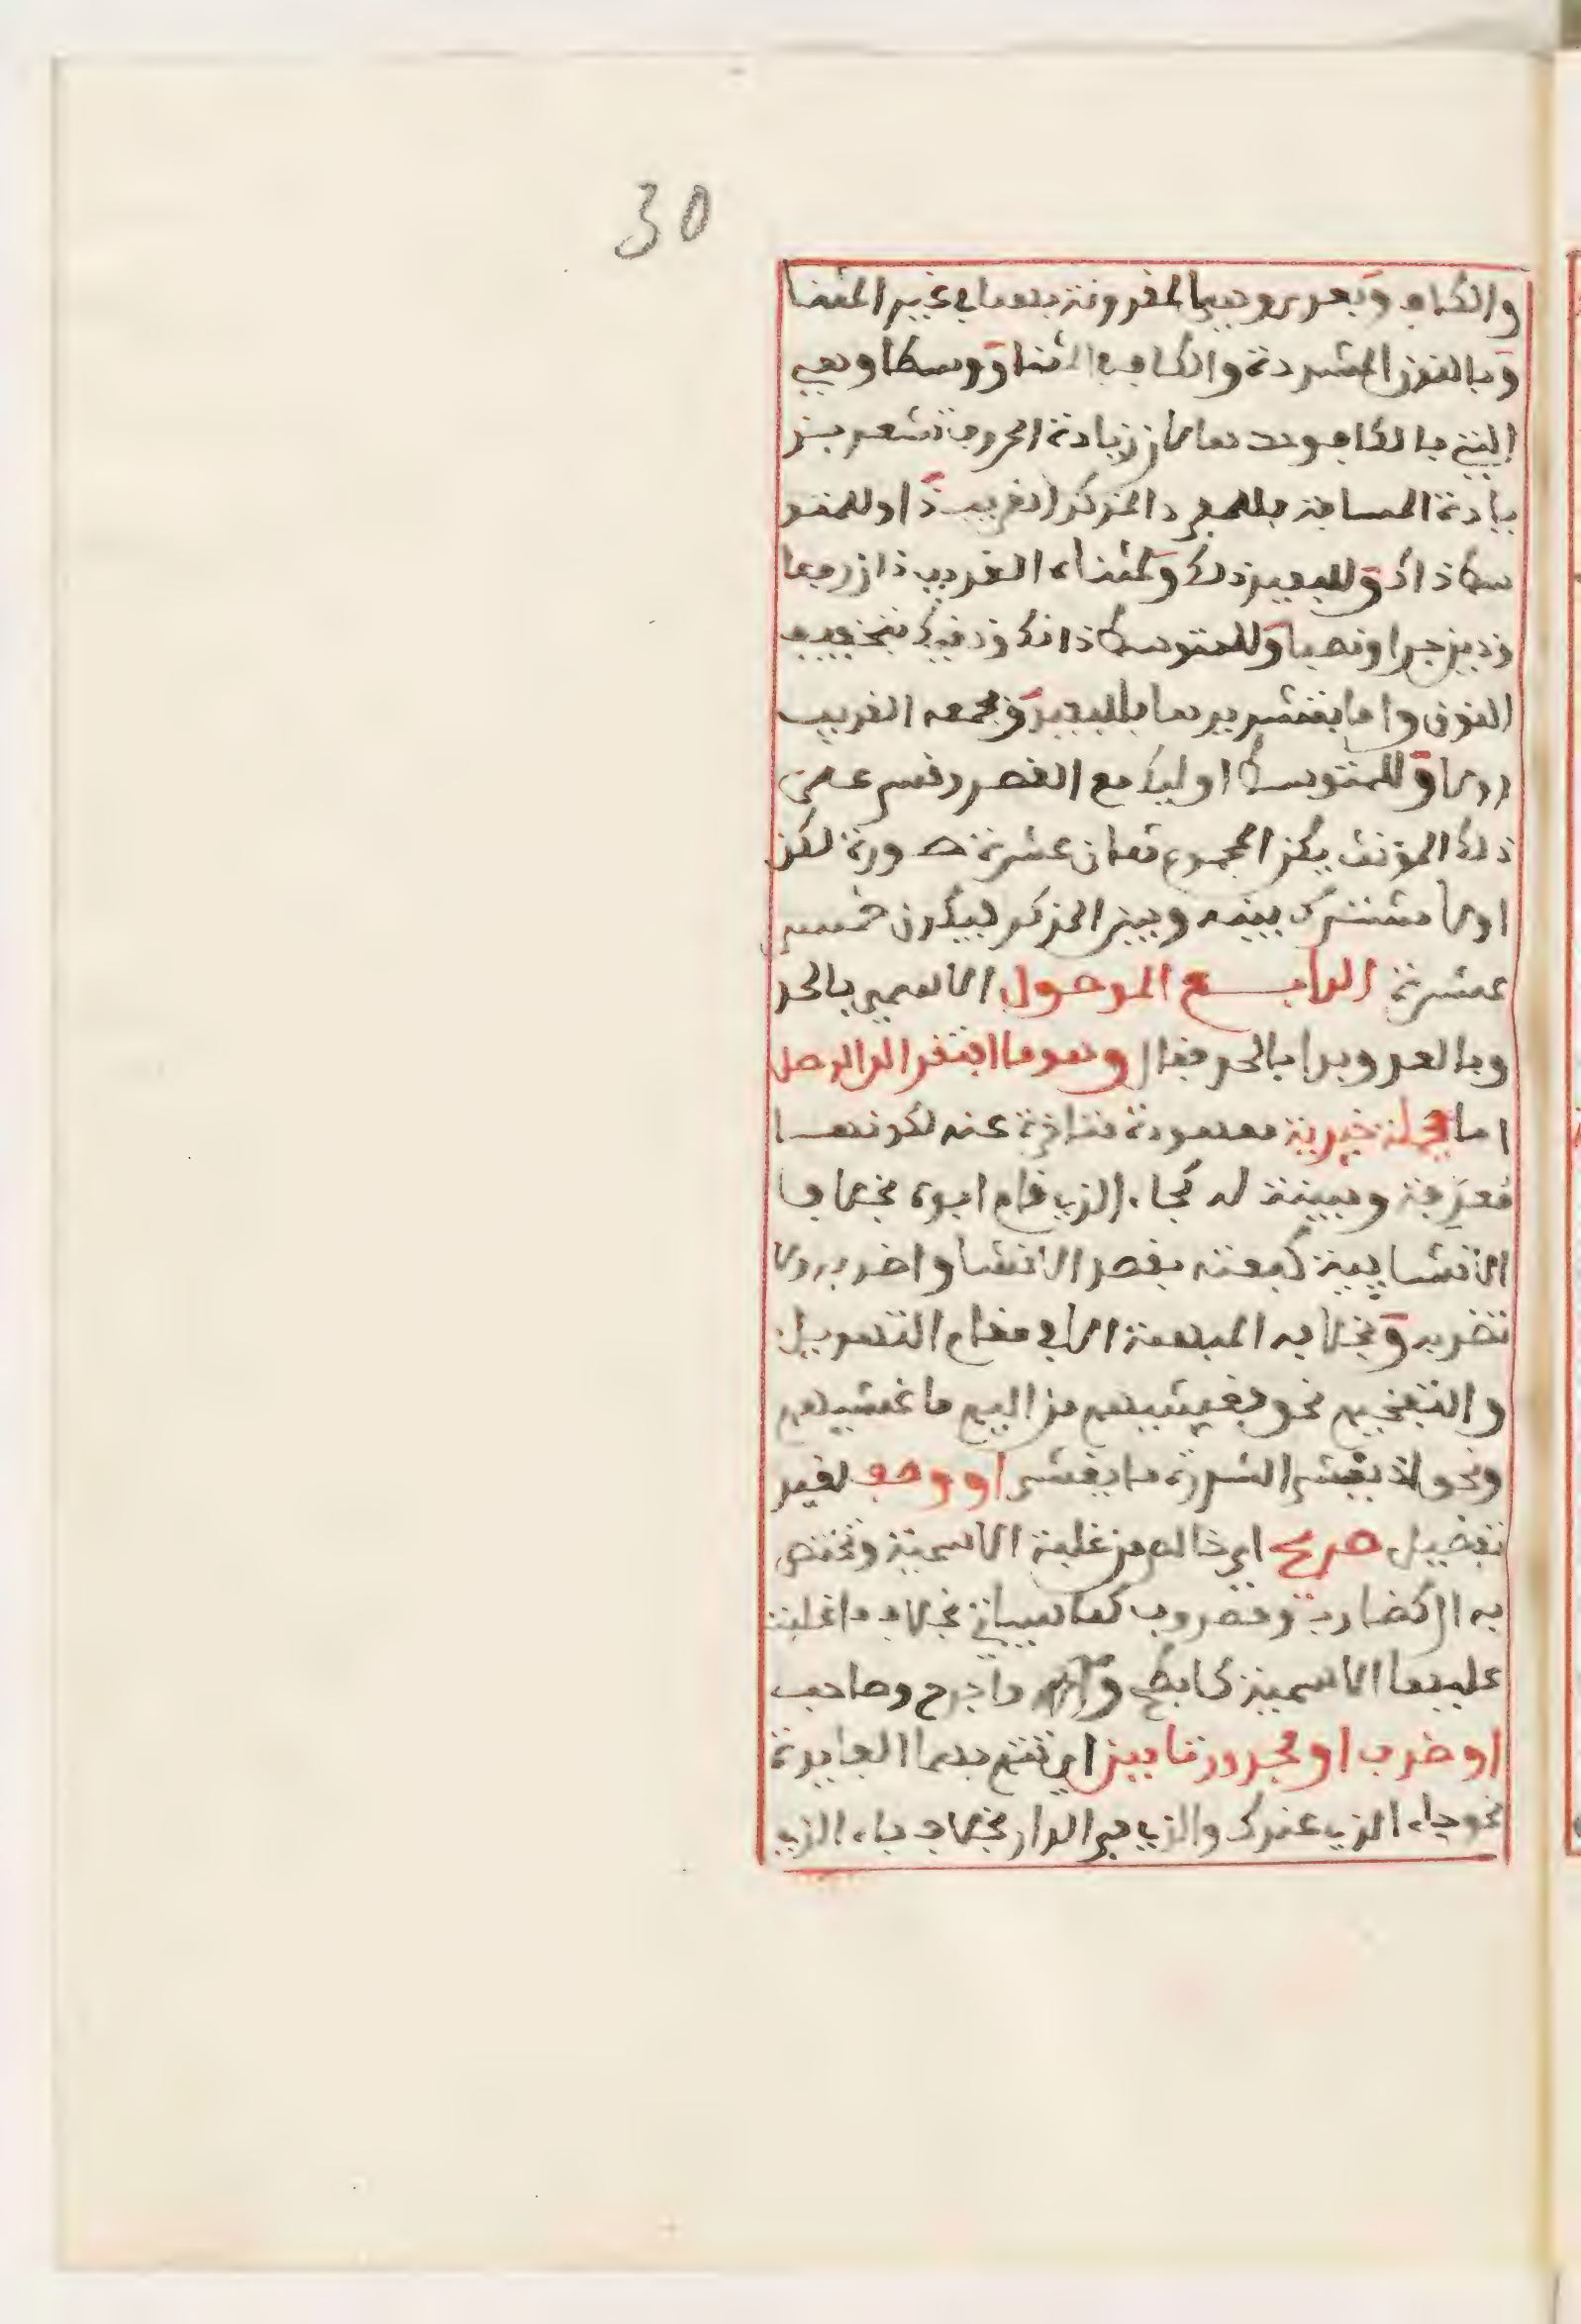 30
والكاف وبعدى وهي المقرونة بهما في غير المثنا
وبالنون المشددة والكاف في المثنا ووسطا وهي
التي بالكاف وحدها لان زيادة الحروف تشعر بز
يادة المسافة فللمفرد المذكر القريب ذا وللمتو
سط ذاك وللبعيد ذلك ولمثناه القريب ذان رفعا
وذين جرا ونصبا وللمتوسط ذانك وذينك بتخفيف
النون واما بتشديدها فللبعيد ولجمعه القريب
اولا وللمتوسط اوليك مع القصر وقس على
ذلك المؤنث يكن المجموع ثمان عشرة صورة لكن
اولا مشترك بينه وبين المذكر فيكون خمس
عشرة الرابع الموصول الاسمي بالحد
وبالعد وبدا بالحد فقال وهو ما افتقر الى الوصل
اما بجملة خبرية معهودة متاخرة عنه لكونها
معرفة ومبينة له كجاء الذي قام ابوه بخلاف
الانشايية كبعته بقصد الانشا واضربه ولا
تضربه وبخلاف المبهمة الا في مقام التهويل
والتفخيم نحو فغشيهم من اليم ما غشيهم
ونحو اذ يغشى السدرة ما يغشى او وصف لغير
تفضيل صريح اي خالص من غلبة الاسمية وتختص
به ال كضارب ومضروب كما سياتي بخلاف ما غلبت
عليها الاسمية كابطح واجرع وصاحب
او ظرف او مجرور تامين اي تتم بهما الفايدة
نحو جاء الذي عندك والذي في الدار بخلاف جاء الذي